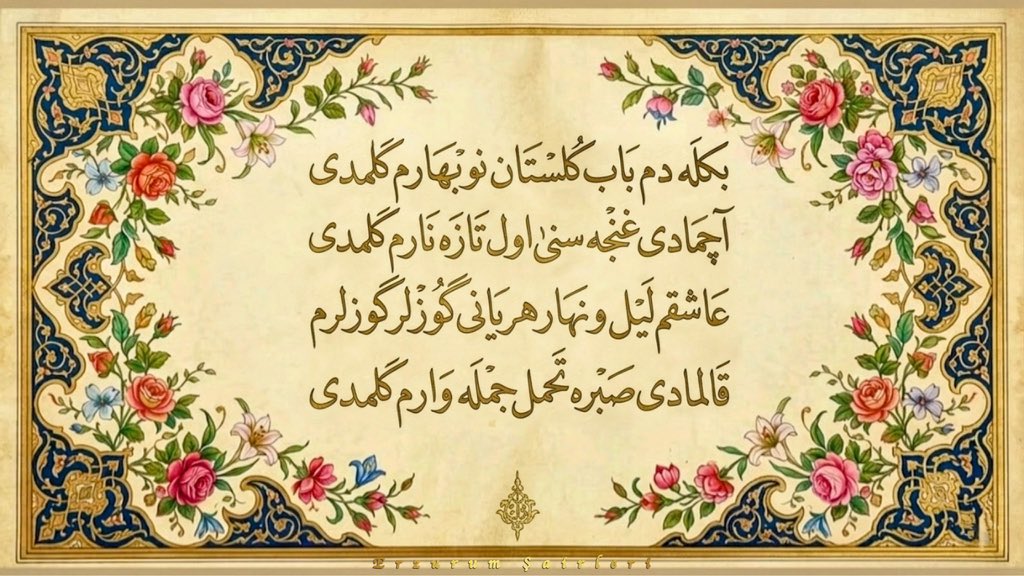 بكلَه دم بَاب كُلسْتَان نوبْهَارم گلمدى
آچمَادى غنْجه سنىٰ اول تَازَه نَارم گلمدى
عَاشقم لَيْل و نهَار هر يَانى گوُزْلر گوزلرم
قَالمادى صَبْره تَحمل جمْلَه وَارم گلمدى
Erzurum Şairleri